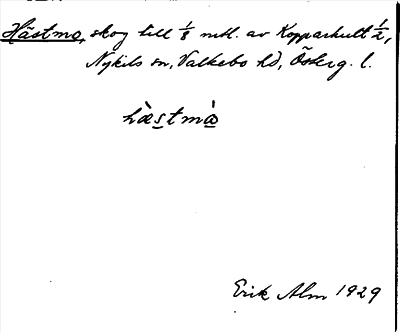 Hästmo, skog till 1/8 mtl. av Kopparhult 1/2,
Nykils sn, Valkebo hd, Österg. l.
hàstmò
Erik Alm 1929